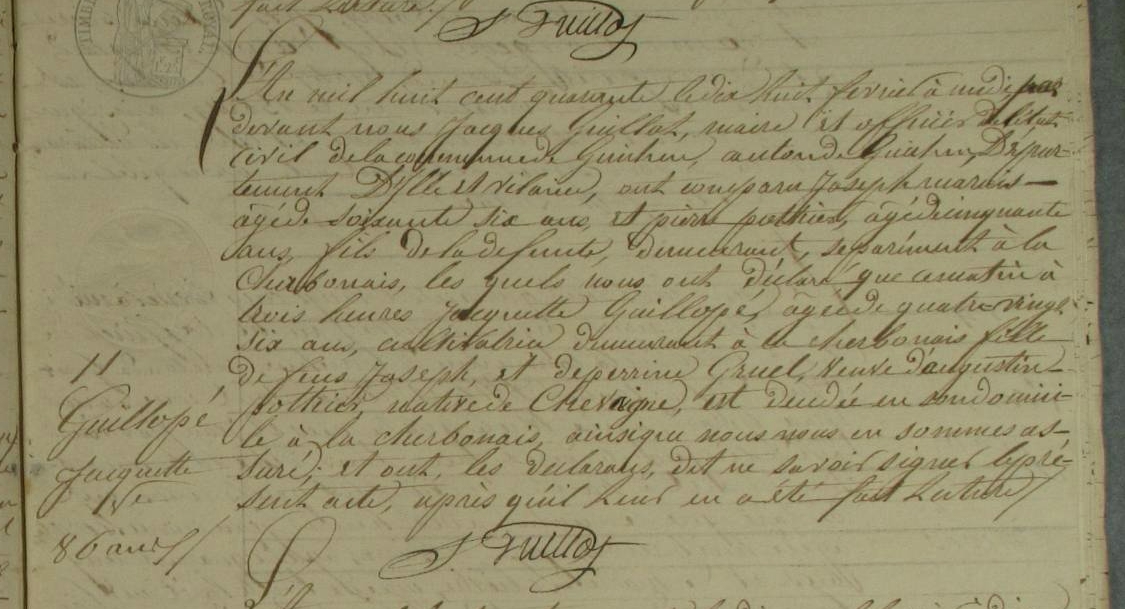 fait Lecture /.
J Guillot
L'An mil huit cent quarante le dix huit fevrier à midi par
devant nous Jacques Guillot, maire et officier de l'état
civil de la commune de Guichen, canton de Guichen, Dépar-
tement D'ylle et vilaine, ont comparu Joseph marais
âgé de soixante six ans, et pierre pothier, âgé de cinquante
ans, fils de la defunte, demeurant, separément à la
Cherbonais, les quels nous ont déclaré que ce matin à
trois heures Jacquette Guillopé, âgée de quatre-vingt
six ans, cultivatrice demeurant à la cherbonais fille
de feus Joseph, et de perrine Gruel, veuve d'augustin
pothier, native de Chevaigne, est decedée en son domici-
le à la cherbonais, ainsi que nous nous en sommes as-
suré; et ont, les declarans, dit ne savoir signer le pré-
sent acte, après qu'il leur en a été fait Lecture /
11
Guillopé
Jacquette
Ve
86 ans //
J Guillot